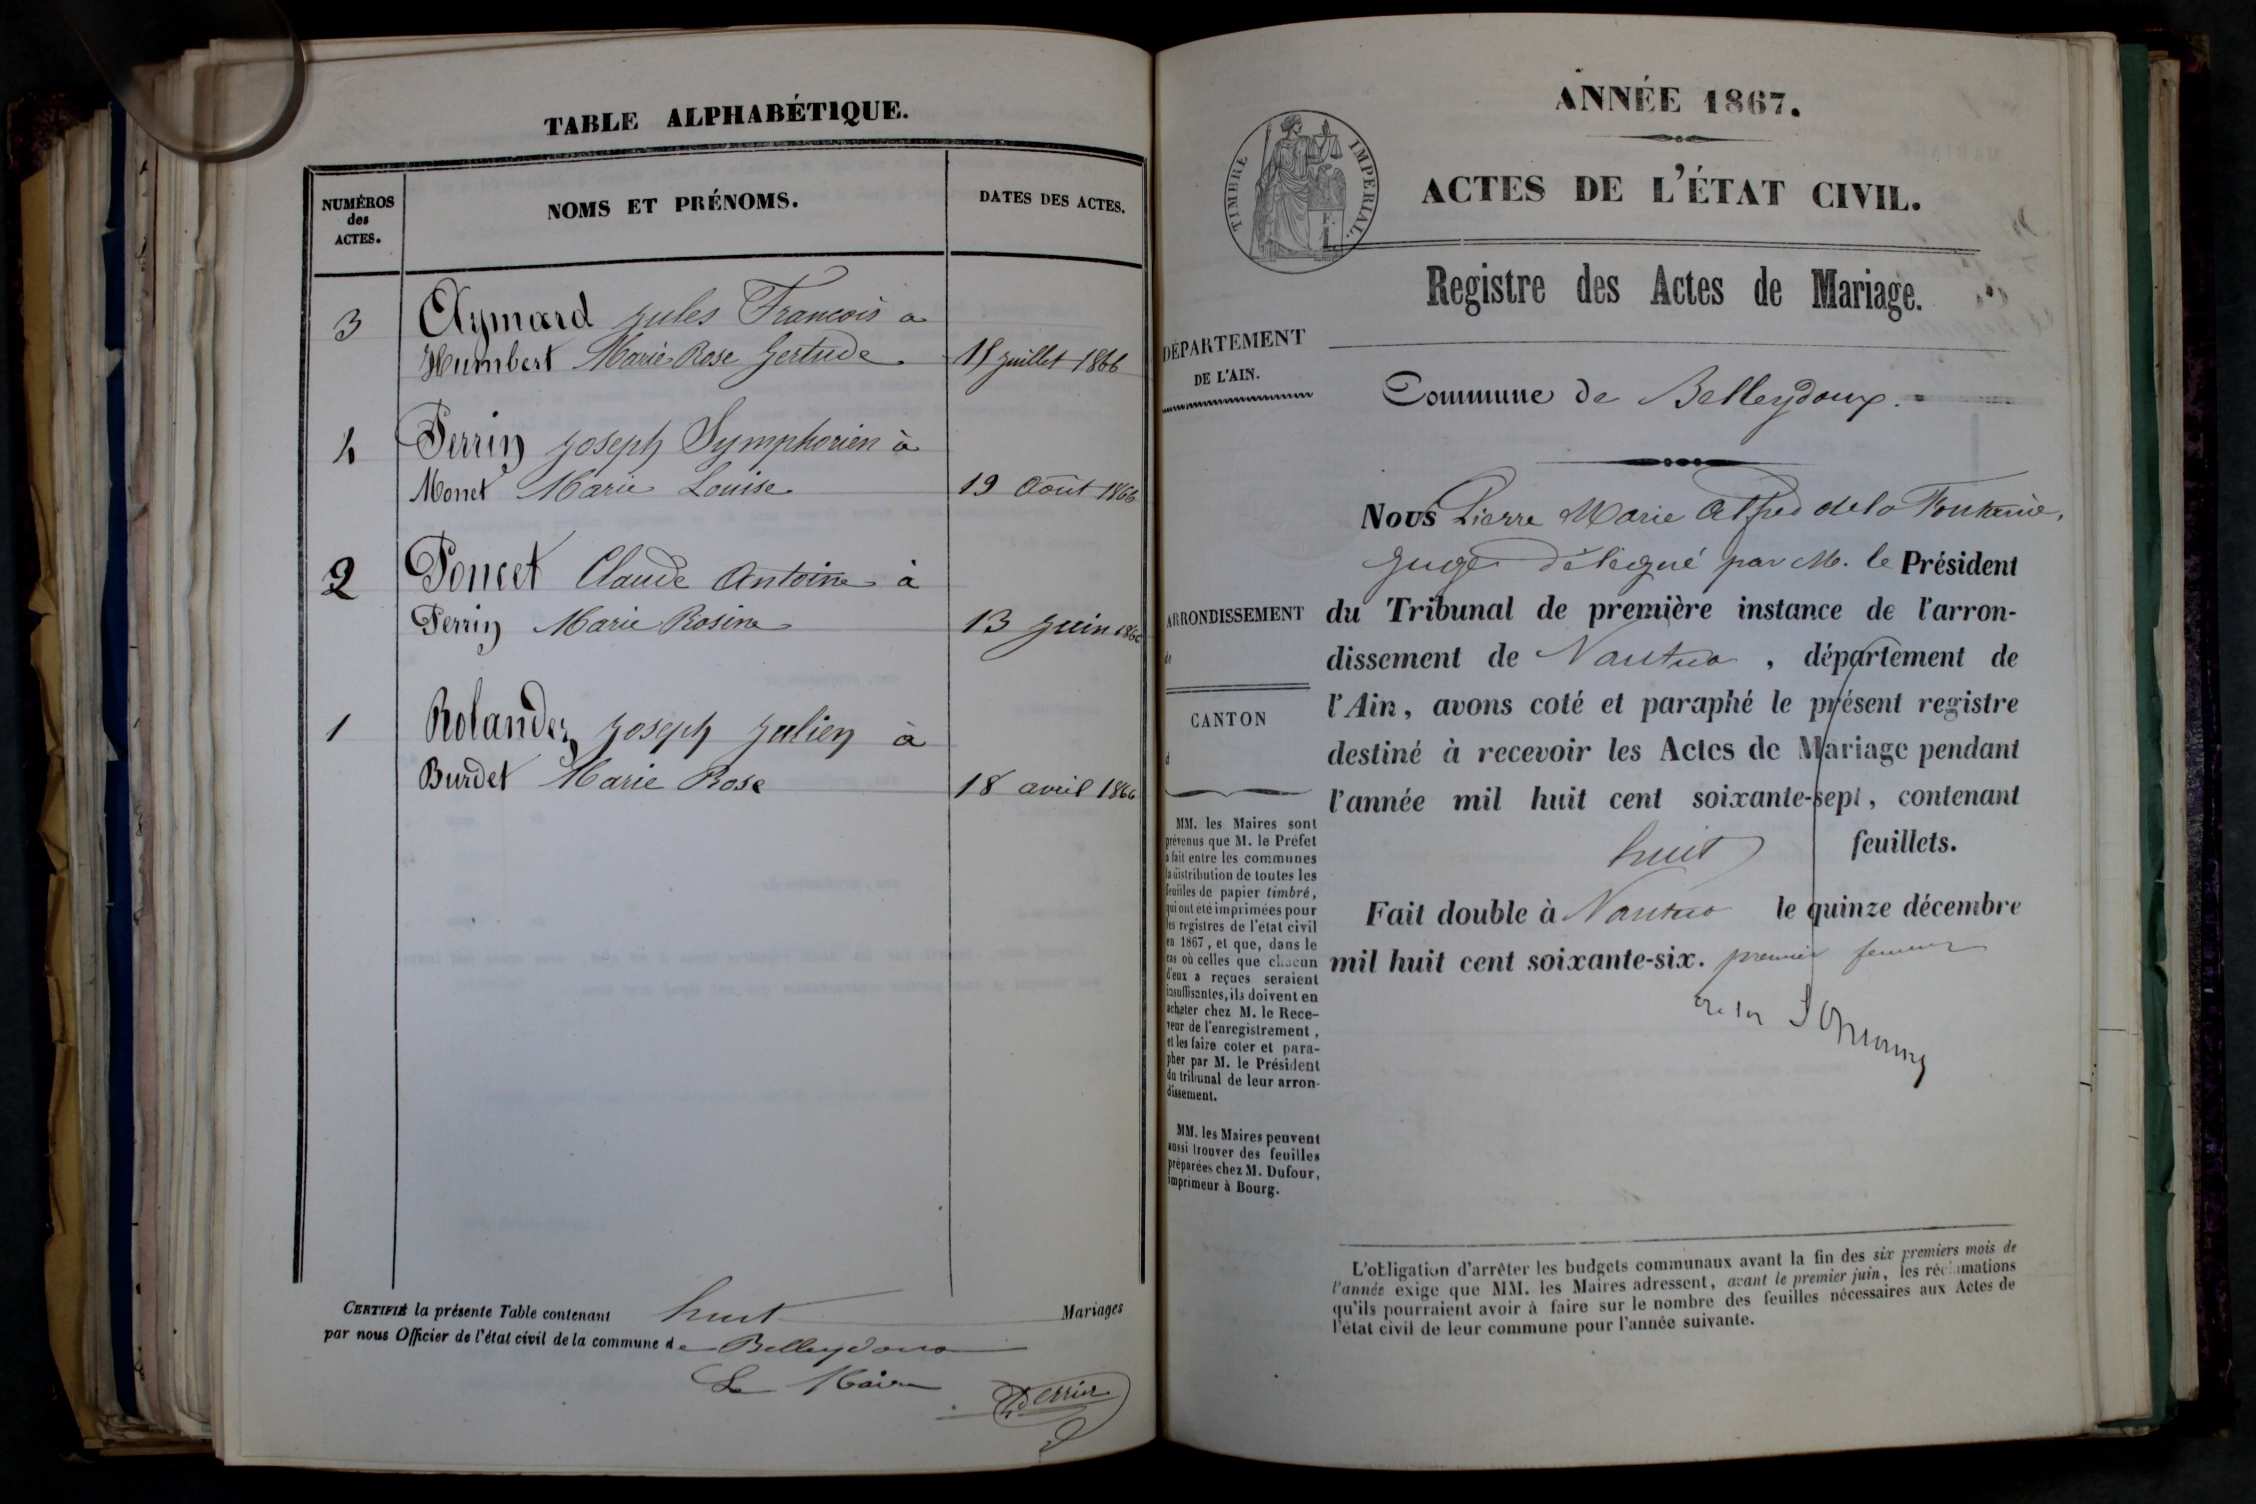 TABLE ALPHABÉTIQUE.
NUMÉROS
des
ACTES.
NOMS ET PRÉNOMS.
DATES DES ACTES.
3
Aymard Jules François à
Humbert Marie Rose Gertrude
15 Juillet 1866
4
Perrin Joseph Symphorien à
Monet Marie Louise
19 Août 1866
2
Poncet Claude Antoine à
Perrin Marie Rosine
13 Juin 1866
1
Rolandez Joseph Julien à
Burdet Marie Rose
18 avril 1866
CERTIFIÉ la présente Table contenant huit Mariages
par nous Officier de l'état civil de la commune de Belleydoux
Le Maire
Perrin
ANNÉE 1867.
TIMBRE IMPERIAL.
ACTES DE L'ÉTAT CIVIL.
Registre des Actes de Mariage.
DÉPARTEMENT
DE L'AIN.
Commune de Belleydoux.
Nous Pierre Marie Alfred de la
Juge délégué par M. le Président
du Tribunal de première instance de l'arron-
dissement de Nantua, département de
l'Ain, avons coté et paraphé le présent registre
destiné à recevoir les Actes de Mariage pendant
l'année mil huit cent soixante-sept, contenant
huit feuillets.
Fait double à Nantua le quinze décembre
mil huit cent soixante-six. premier
ARRONDISSEMENT
de
CANTON
d
MM. les Maires sont
prévenus que M. le Préfet
a fait entre les communes
la distribution de toutes les
feuilles de papier timbré,
qui ont été imprimées pour
les registres de l'état civil
en 1867, et que, dans le
cas où celles que chacun
d'eux a reçues seraient
insuffisantes, ils doivent en
acheter chez M. le Rece-
veur de l'enregistrement,
et les faire coter et para-
pher par M. le Président
du tribunal de leur arron-
dissement.
MM. les Maires peuvent
aussi trouver des feuilles
préparées chez M. Dufour,
imprimeur à Bourg.
L'obligation d'arrêter les budgets communaux avant la fin des six premiers mois de
l'année exige que MM. les Maires adressent, avant le premier juin, les réclamations
qu'ils pourraient avoir à faire sur le nombre des feuilles nécessaires aux Actes de
l'état civil de leur commune pour l'année suivante.